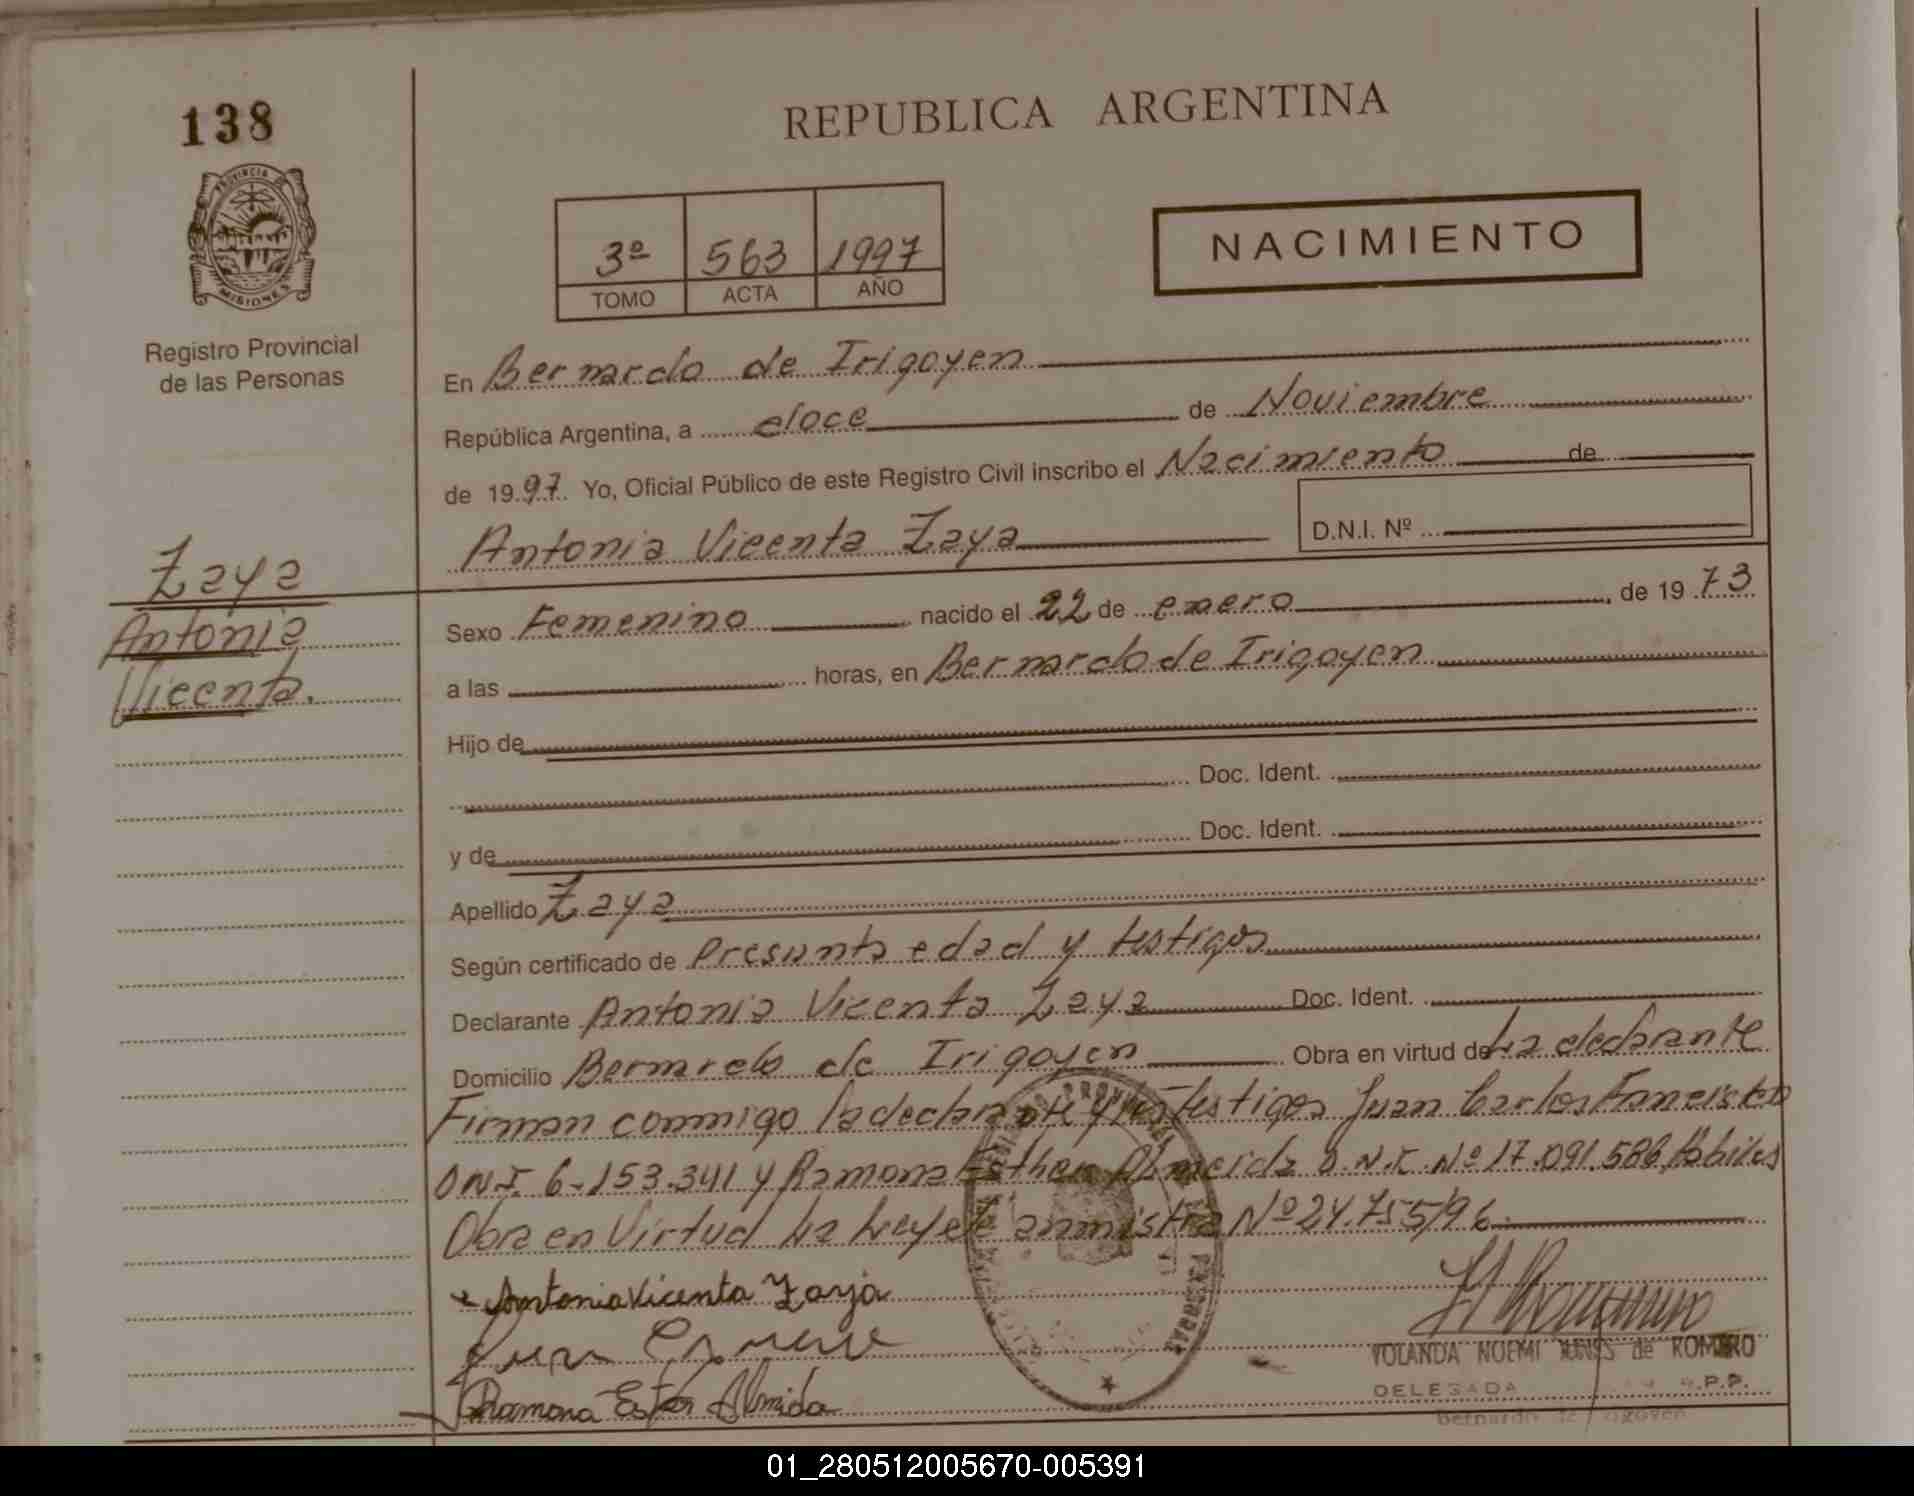 138
REPUBLICA ARGENTINA
PROVINCIA DE
MISIONES
Registro Provincial
de las Personas
3º 563 1997
TOMO ACTA AÑO
NACIMIENTO
En Bernardo de Irigoyen
República Argentina, a doce de Noviembre
de 1997. Yo, Oficial Público de este Registro Civil inscribo el Nacimiento de
Antonia Vicenta Zaya D.N.I. Nº
Zaya
Antonia
Vicenta.
Sexo Femenino nacido el 22 de enero, de 1973
a las horas, en Bernardo de Irigoyen
Hijo de
Doc. Ident.
y de Doc. Ident.
Apellido Zaya
Según certificado de Presunta edad y testigos
Declarante Antonia Vicenta Zaya Doc. Ident.
Domicilio Bernardo de Irigoyen Obra en virtud de La declarante
Firman conmigo la declarante y los testigos Juan Carlos
D.N.I. 6-153.341 y Ramona Esther Almeida D.N.I. Nº 17.091.586 hábiles
Obra en Virtud La Nº 24.755/96
Antonia Vicenta Zaya
Ramona Ester Almida
YOLANDA NOEMI de ROMERO
DELEGADA R.P.P.
Bernardo de Irigoyen
01_280512005670-005391